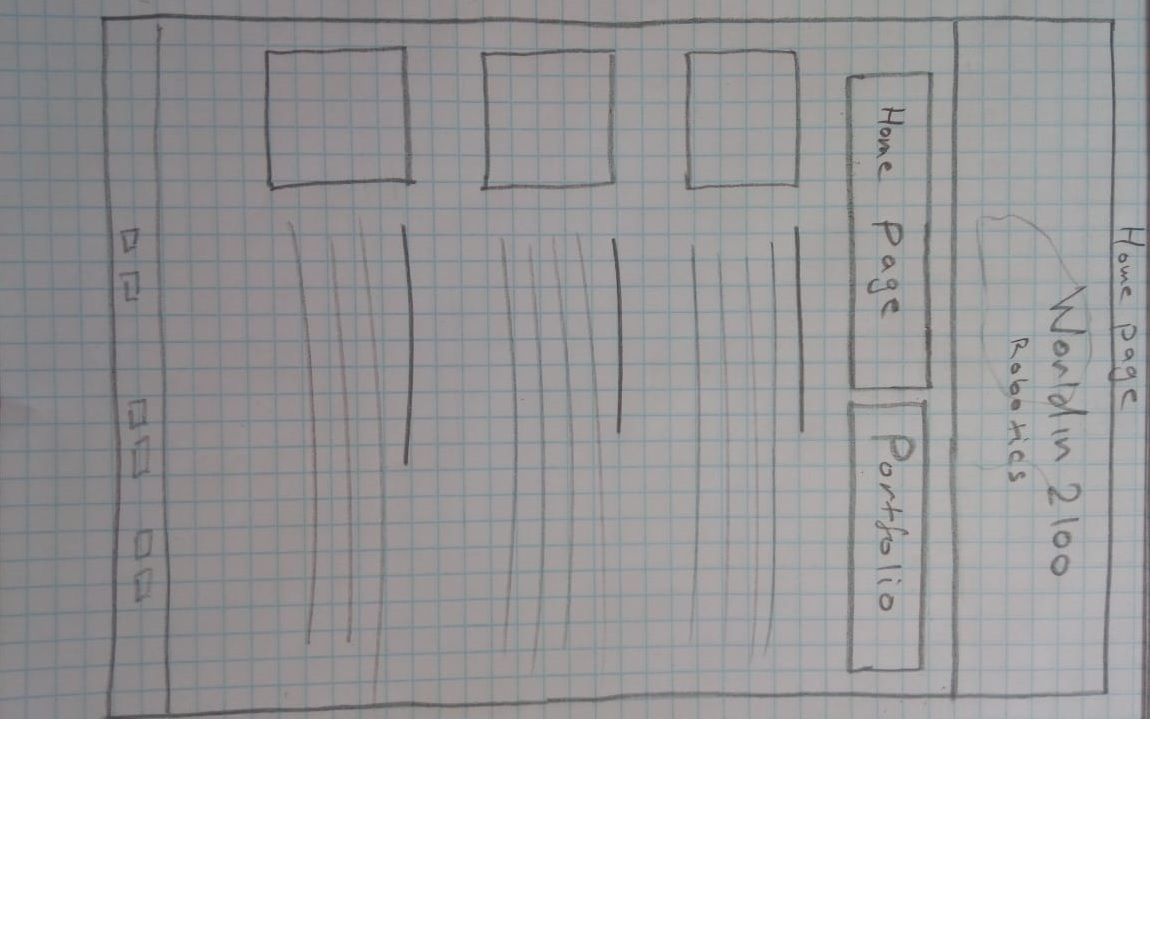 Home page
World in 2100
Robotics
Home Page
Portfolio